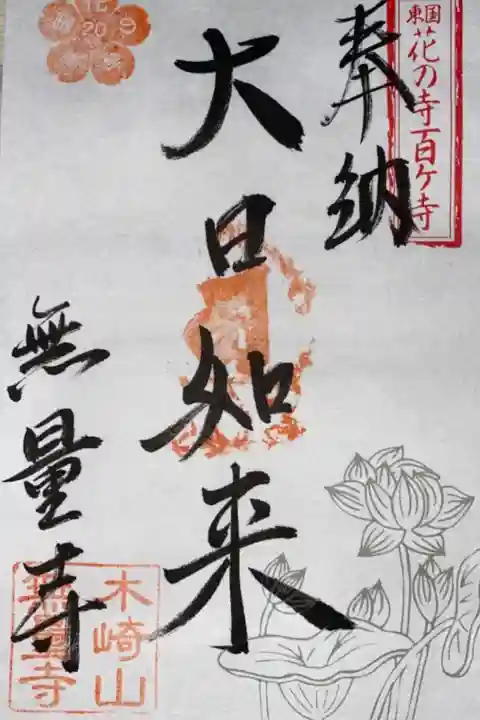 東国花の寺百ケ寺
奉納
大日如来
無量寺
木崎山
無量寺